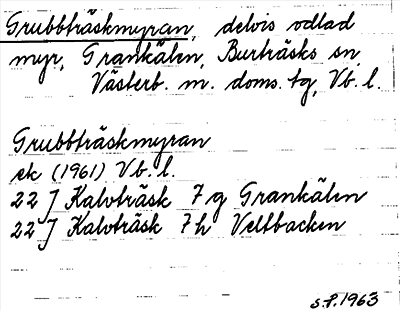 Grubbträskmyran, delvis odlad
myr, Grankälen, Burträsks sn,
Västerb. m. doms. tg, Vb. l.
Grubbträskmyran
ek (1961) Vb. l.
22 J Kalvträsk 7 g Grankälen
22 J Kalvträsk 7 h Veltbacken
S.P. 1963